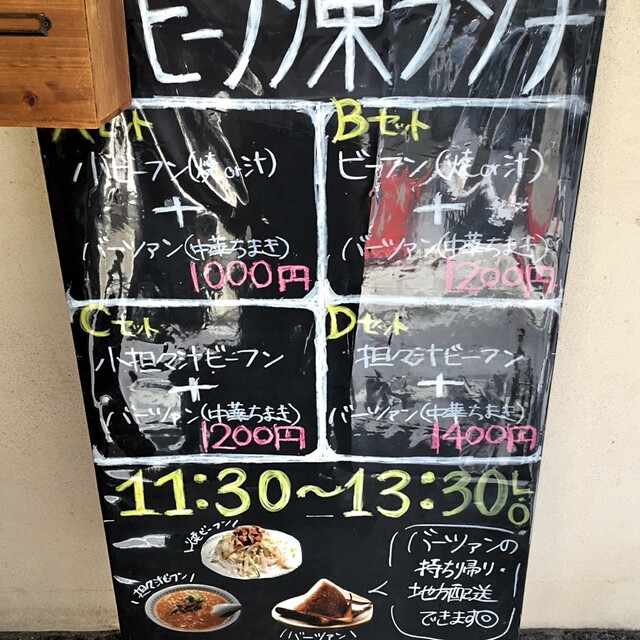 ビーフン東ランチ
Aセット
小ビーフン(焼or汁)
+
バーツァン(中華ちまき)
1000円
Bセット
ビーフン(焼or汁)
+
バーツァン(中華ちまき)
1200円
Cセット
小担々汁ビーフン
+
バーツァン(中華ちまき)
1200円
Dセット
担々汁ビーフン
+
バーツァン(中華ちまき)
1400円
11:30～13:30LO
焼ビーフン
担々汁ビーフン
バーツァン
バーツァンの
持ち帰り・
地方配送
できます◎